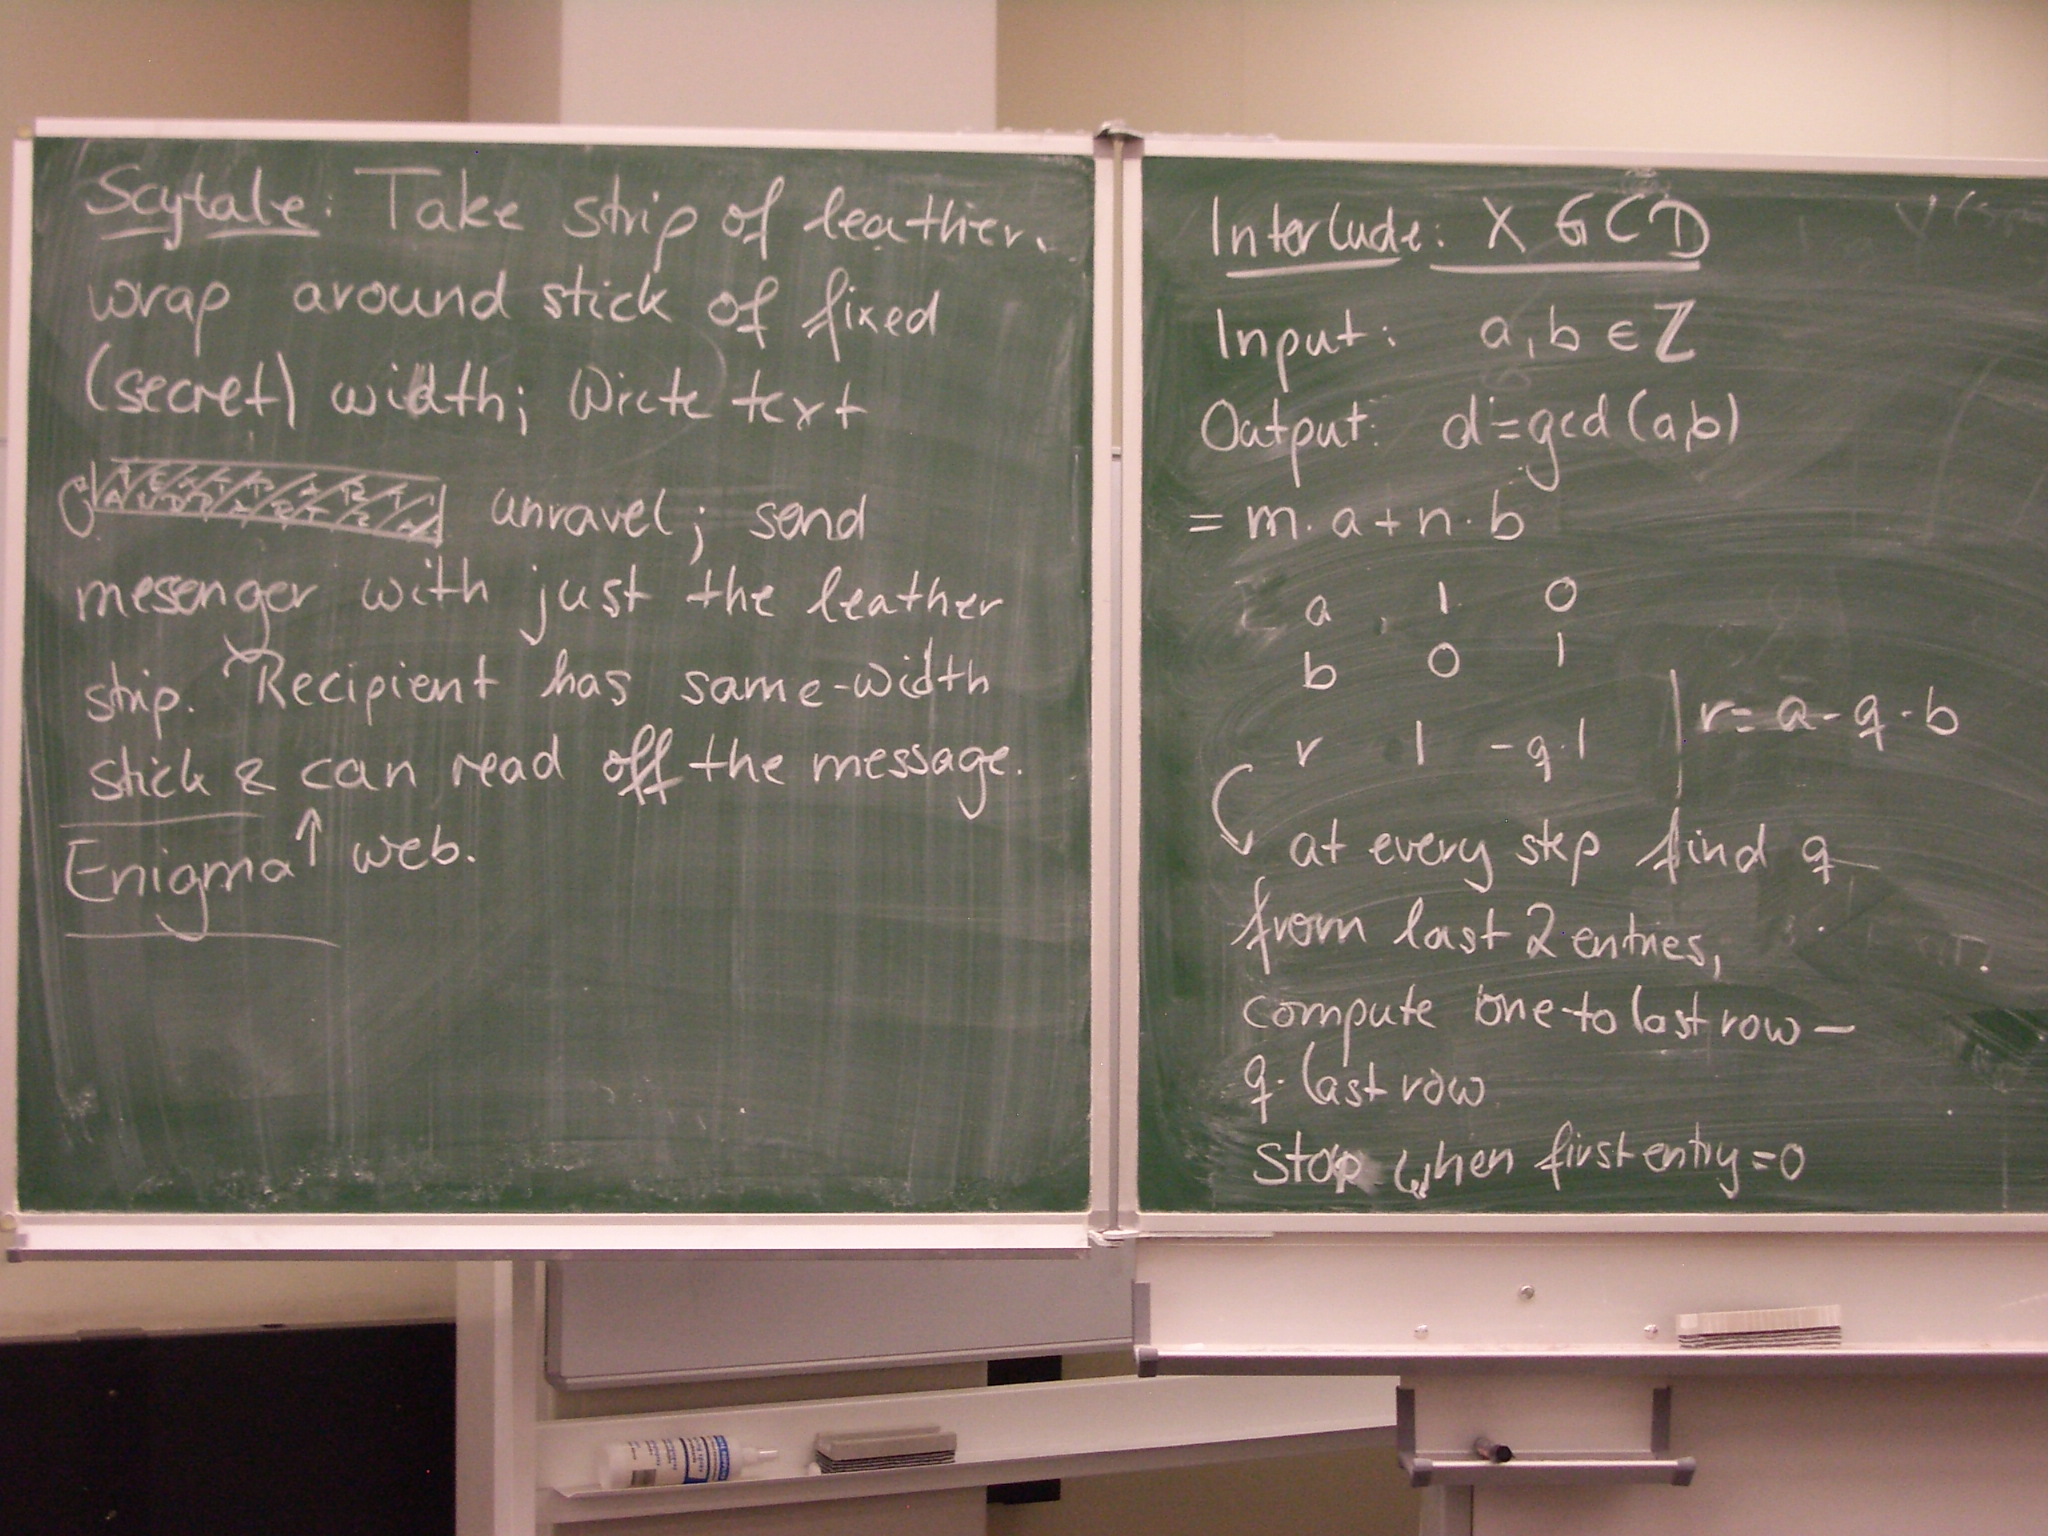 Scytale: Take strip of leather.
wrap around stick of fixed
(secret) width; Write text
unravel; send
messenger with just the leather
strip. Recipient has same-width
stick & can read off the message.
Enigma ↑ web.
Interlude: XGCD
Input: a, b ∈ Z
Output: d = gcd(a,b)
= m·a + n·b
a 1 0
b 0 1
r 1 -q·1 | r = a - q·b
at every step find q
from last 2 entries,
compute one-to last row -
q·last row
Stop when first entry = 0